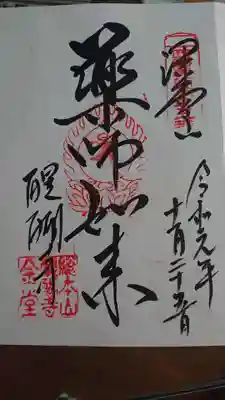 深雪山
令和元年
十月二十五日
薬師如来
醍醐寺
総本山
醍醐寺
金堂